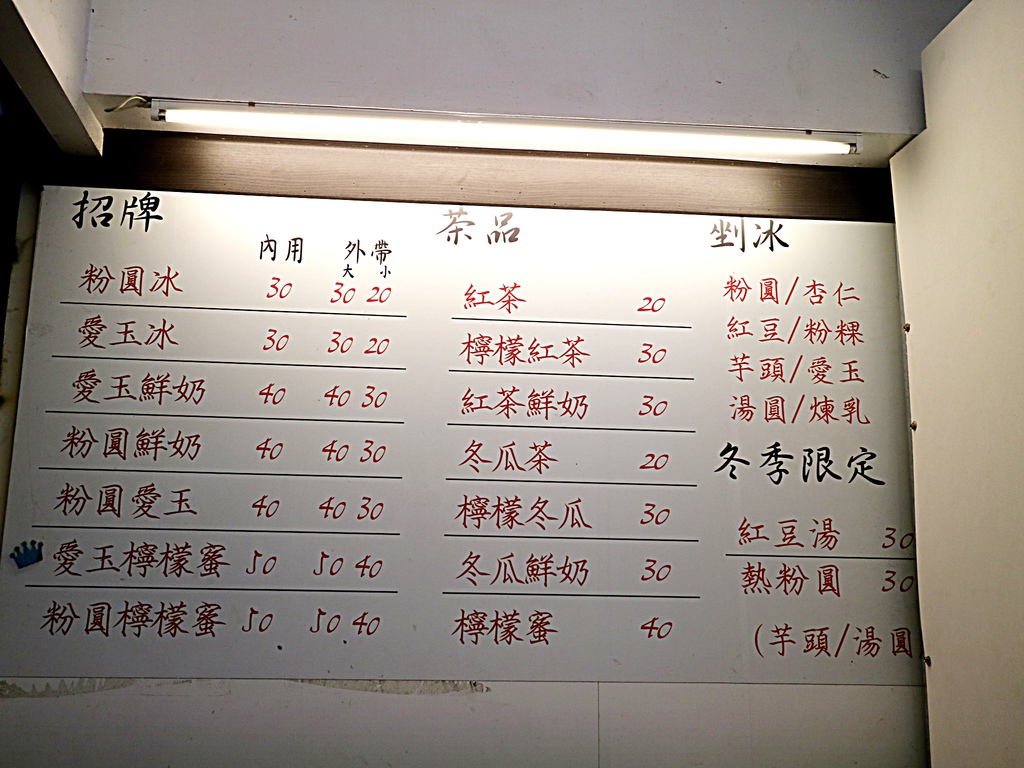 招牌
內用 外帶
大 小
粉圓冰 30 30 20
愛玉冰 30 30 20
愛玉鮮奶 40 40 30
粉圓鮮奶 40 40 30
粉圓愛玉 40 40 30
愛玉檸檬蜜 50 50 40
粉圓檸檬蜜 50 50 40
茶品
紅茶 20
檸檬紅茶 30
紅茶鮮奶 30
冬瓜茶 20
檸檬冬瓜 30
冬瓜鮮奶 30
檸檬蜜 40
剉冰
粉圓/杏仁
紅豆/粉粿
芋頭/愛玉
湯圓/煉乳
冬季限定
紅豆湯 30
熱粉圓 30
(芋頭/湯圓